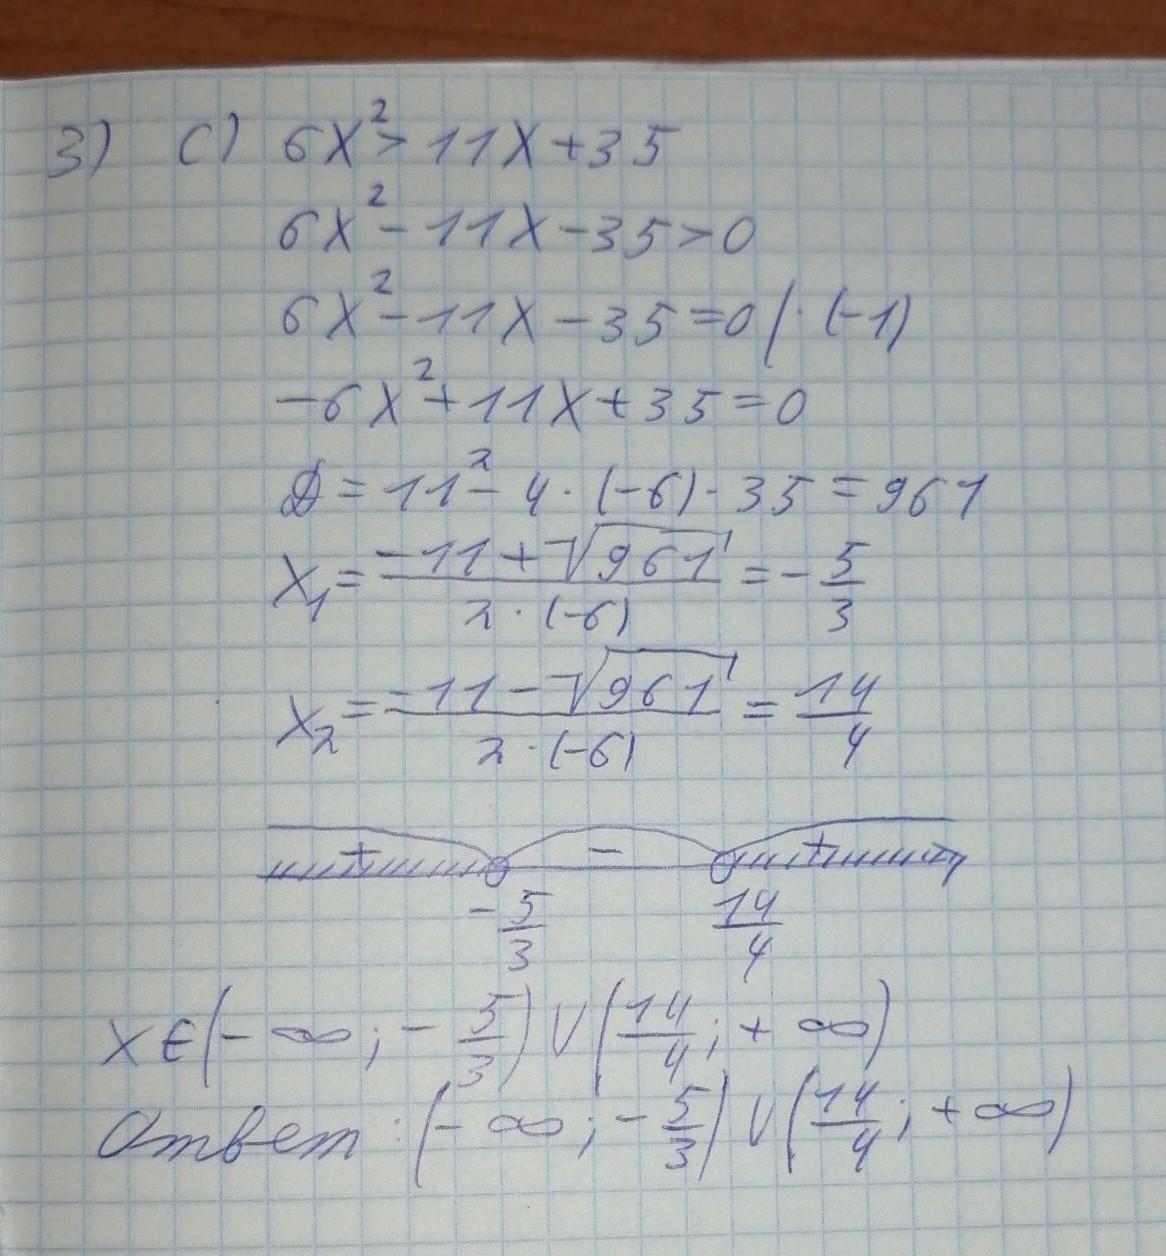 3) c) 6x² > 11x + 35
6x² - 11x - 35 > 0
6x² - 11x - 35 = 0 / · (-1)
-6x² + 11x + 35 = 0
D = 11² - 4 · (-6) · 35 = 961
x₁ = (-11 + √961) / (2 · (-6)) = -5/3
x₂ = (-11 - √961) / (2 · (-6)) = 14/4
+ - +
-5/3 14/4
x ∈ (-∞; -5/3) ∪ (14/4; +∞)
Ответ: (-∞; -5/3) ∪ (14/4; +∞)